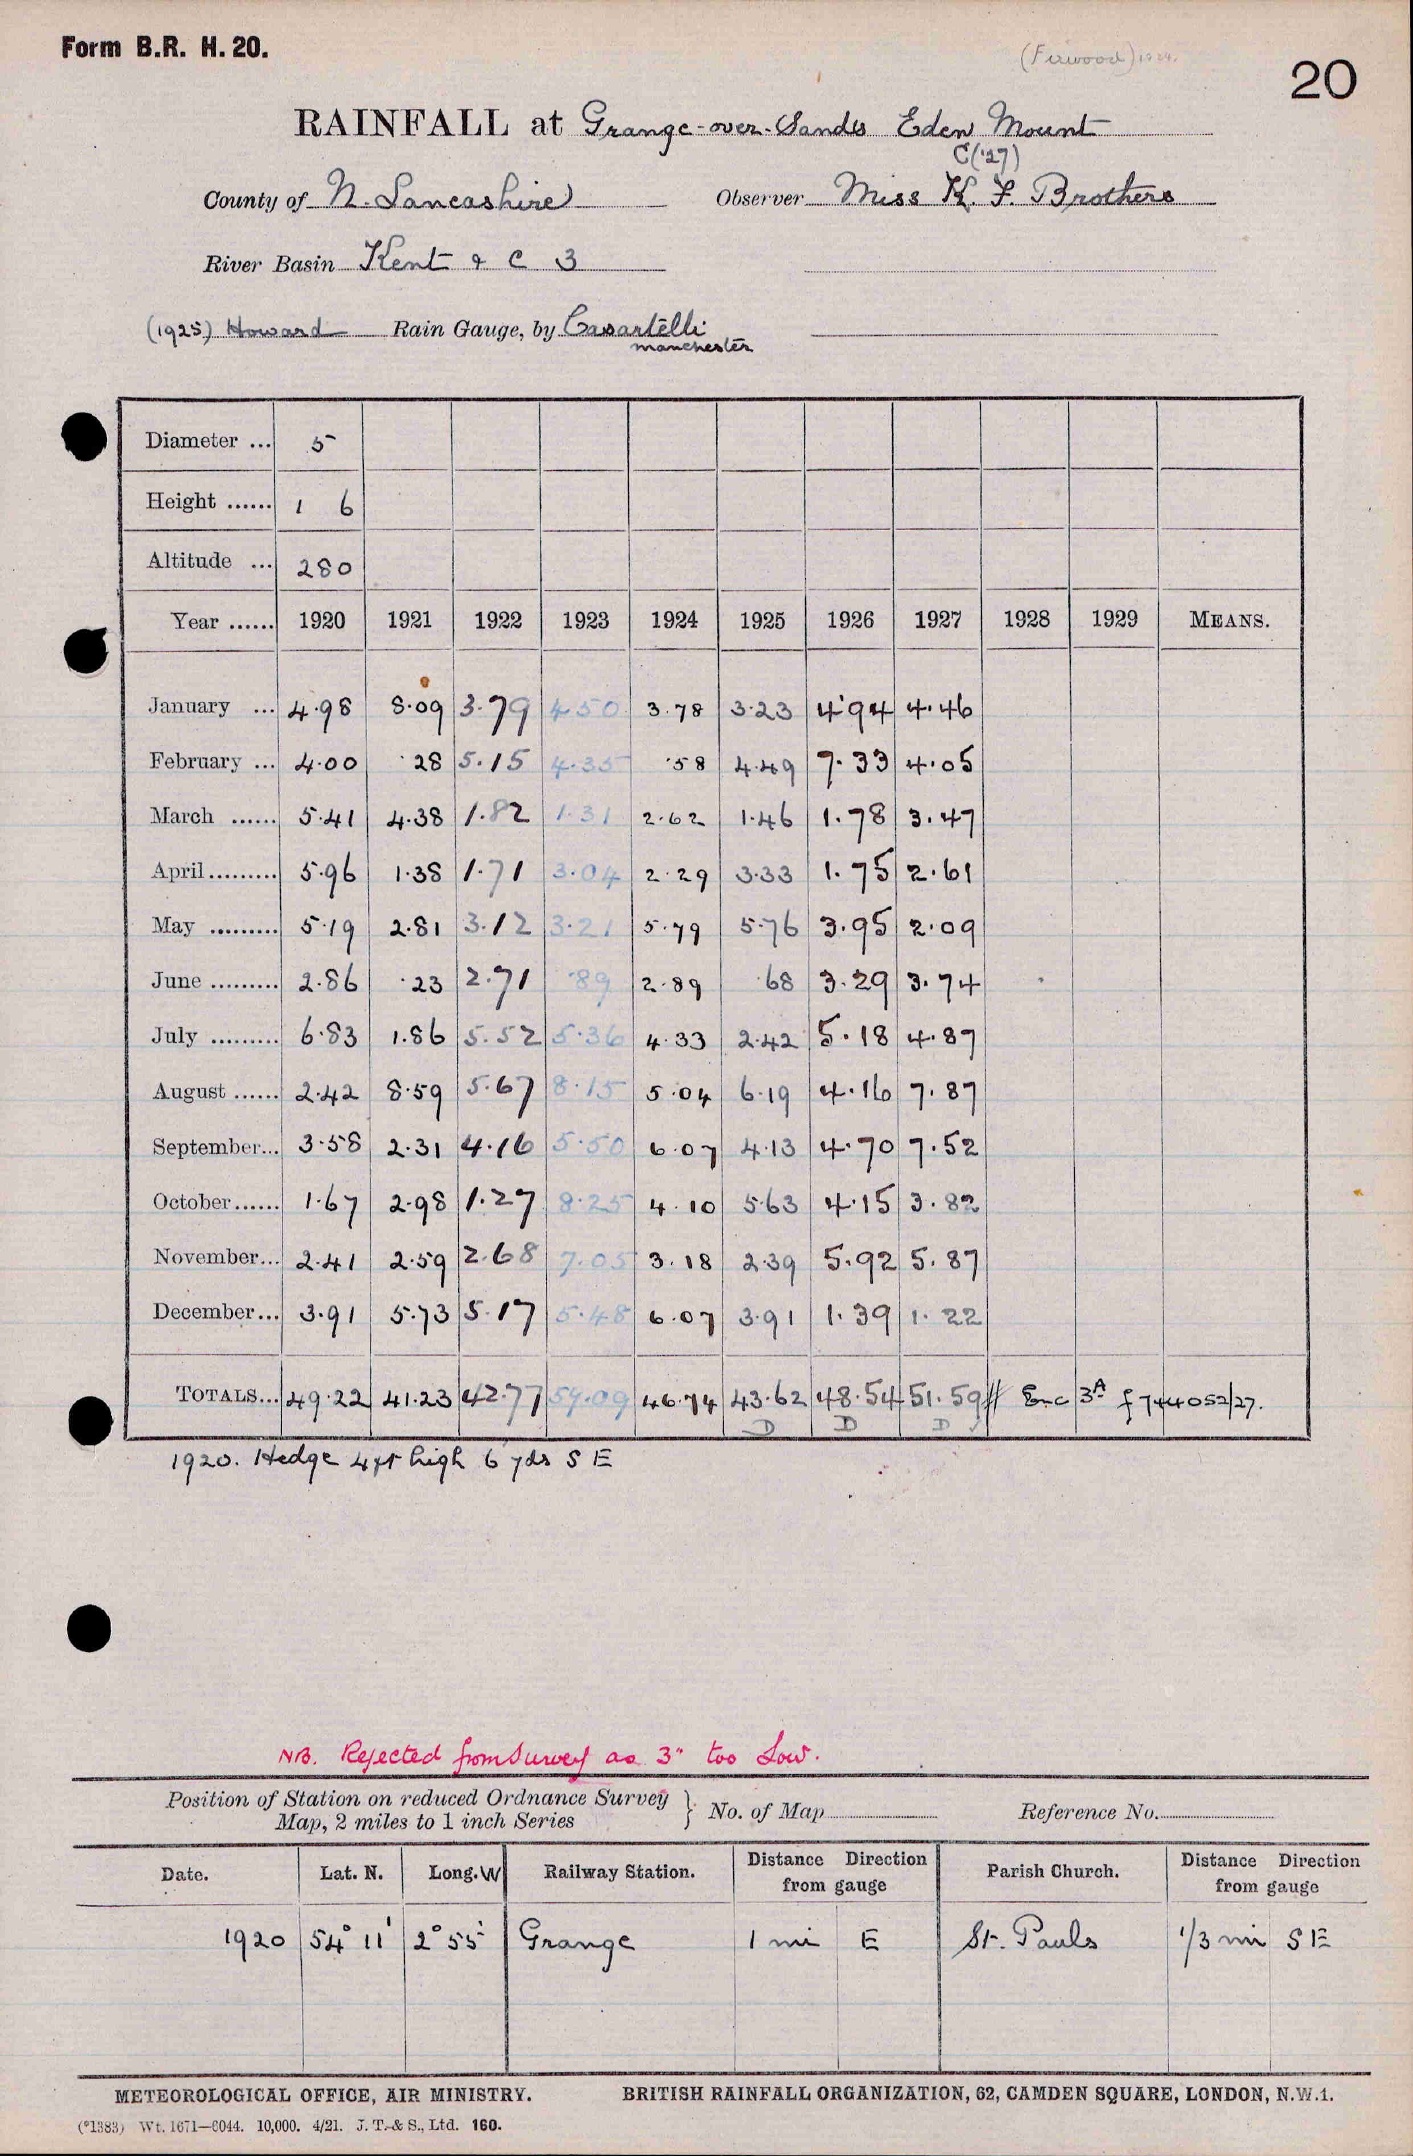 Form B.R. H. 20.
(Firwood) 1924.
20
RAINFALL at Grange-over-Sands Eden Mount
C('27)
County of N. Lancashire Observer Miss K. F. Brothers
River Basin Kent & C 3
(1925) Howard Rain Gauge, by Casartelli
Manchester
Diameter ... 5
Height ...... 1 6
Altitude ... 280
Year ...... 1920 1921 1922 1923 1924 1925 1926 1927 1928 1929 MEANS.
January ... 4.98 8.09 3.79 4.50 3.78 3.23 4.94 4.46
February ... 4.00 .28 5.15 4.35 .58 4.49 7.33 4.05
March ...... 5.41 4.38 1.82 1.31 2.62 1.46 1.78 3.47
April ......... 5.96 1.38 1.71 3.04 2.29 3.33 1.75 2.61
May ......... 5.19 2.81 3.12 3.21 5.79 5.76 3.95 2.09
June ......... 2.86 .23 2.71 .89 2.89 .68 3.29 3.74
July ......... 6.83 1.86 5.52 5.36 4.33 2.42 5.18 4.87
August ...... 2.42 8.59 5.67 8.15 5.04 6.19 4.16 7.87
September... 3.58 2.31 4.16 5.50 6.07 4.13 4.70 7.52
October...... 1.67 2.98 1.27 8.25 4.10 5.63 4.15 3.82
November... 2.41 2.59 2.68 7.05 3.18 2.39 5.92 5.87
December... 3.91 5.73 5.17 5.48 6.07 3.91 1.39 1.22
TOTALS... 49.22 41.23 42.77 57.09 46.74 43.62 48.54 51.59 // Enc 3A f 744052/27.
D D D
1920. Hedge 4ft high 6 yds S E
NB. Rejected from Survey as 3" too Low.
Position of Station on reduced Ordnance Survey
Map, 2 miles to 1 inch Series } No. of Map Reference No.
Date. Lat. N. Long. W Railway Station. Distance Direction from gauge Parish Church. Distance Direction from gauge
1920 54° 11' 2° 55' Grange 1 mi E St. Pauls 1/3 mi S E
METEOROLOGICAL OFFICE, AIR MINISTRY. BRITISH RAINFALL ORGANIZATION, 62, CAMDEN SQUARE, LONDON, N.W.1.
(*1383) Wt. 1671—6044. 10,000. 4/21. J. T. & S., Ltd. 160.